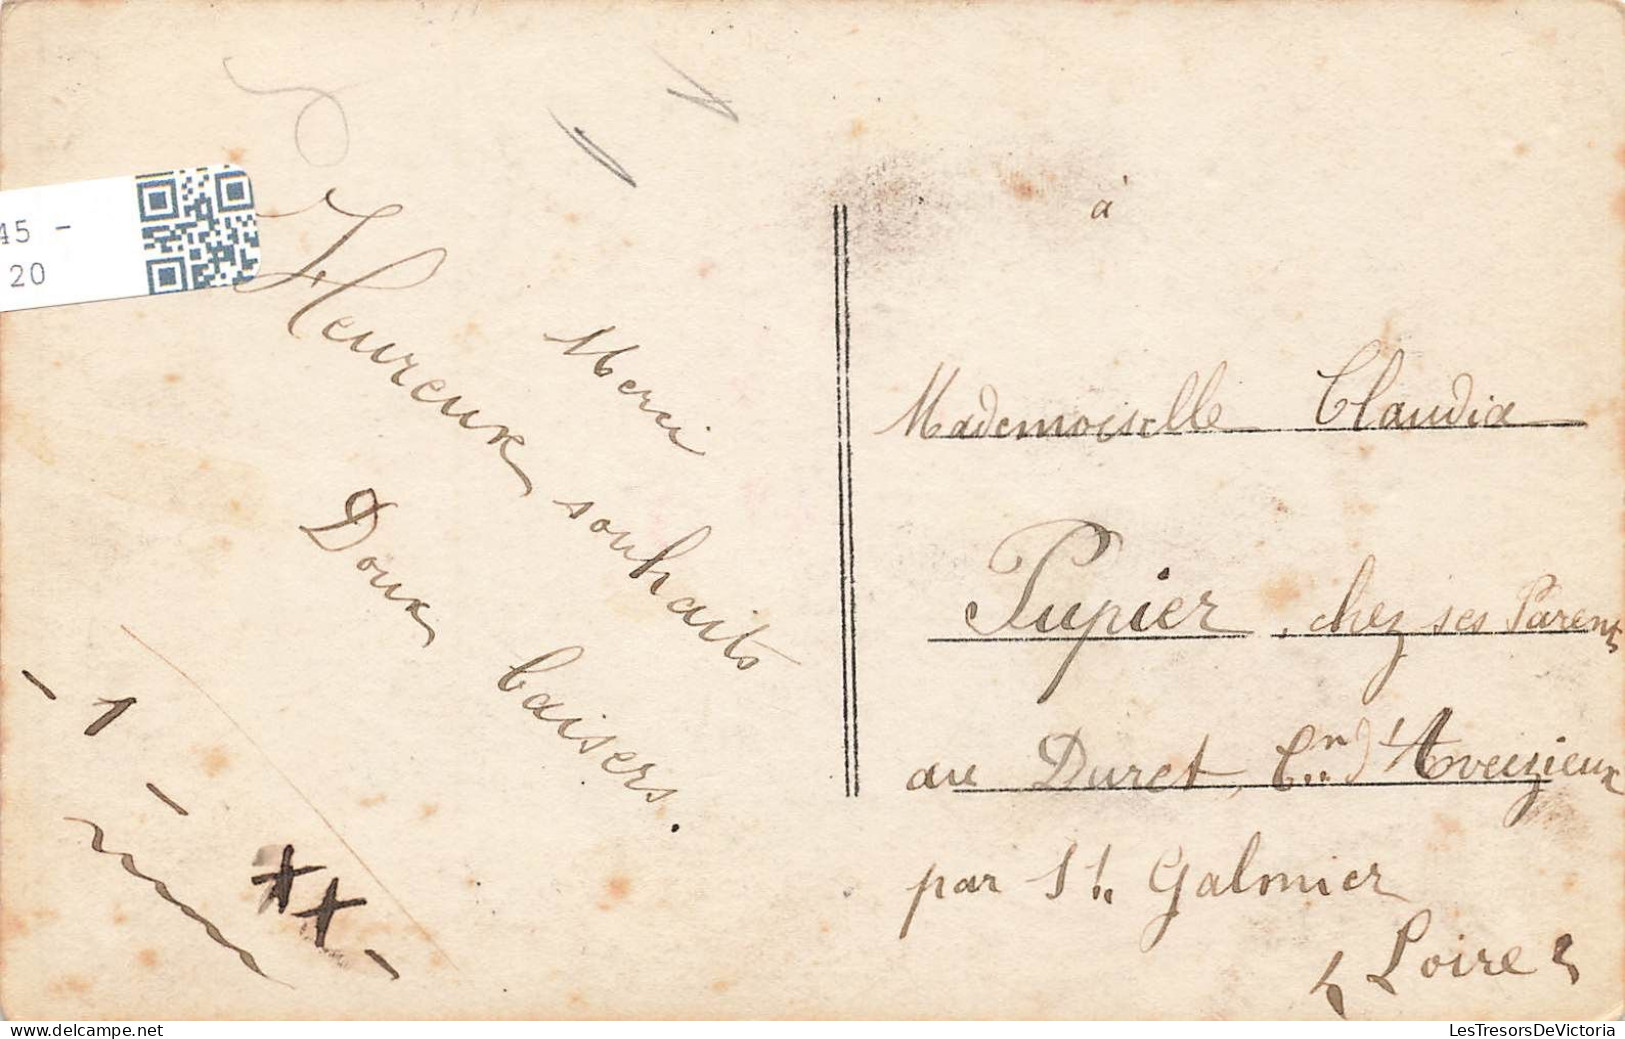 45 -
20
Merci
Heureux souhaits
Doux baisers.
- 1 -
xx -
à
Mademoiselle Claudia
Pupier, chez ses Parents
au Duret, Cn. d'Aveizieux
par St. Galmier
(Loire)
LesTresorsDeVictoria